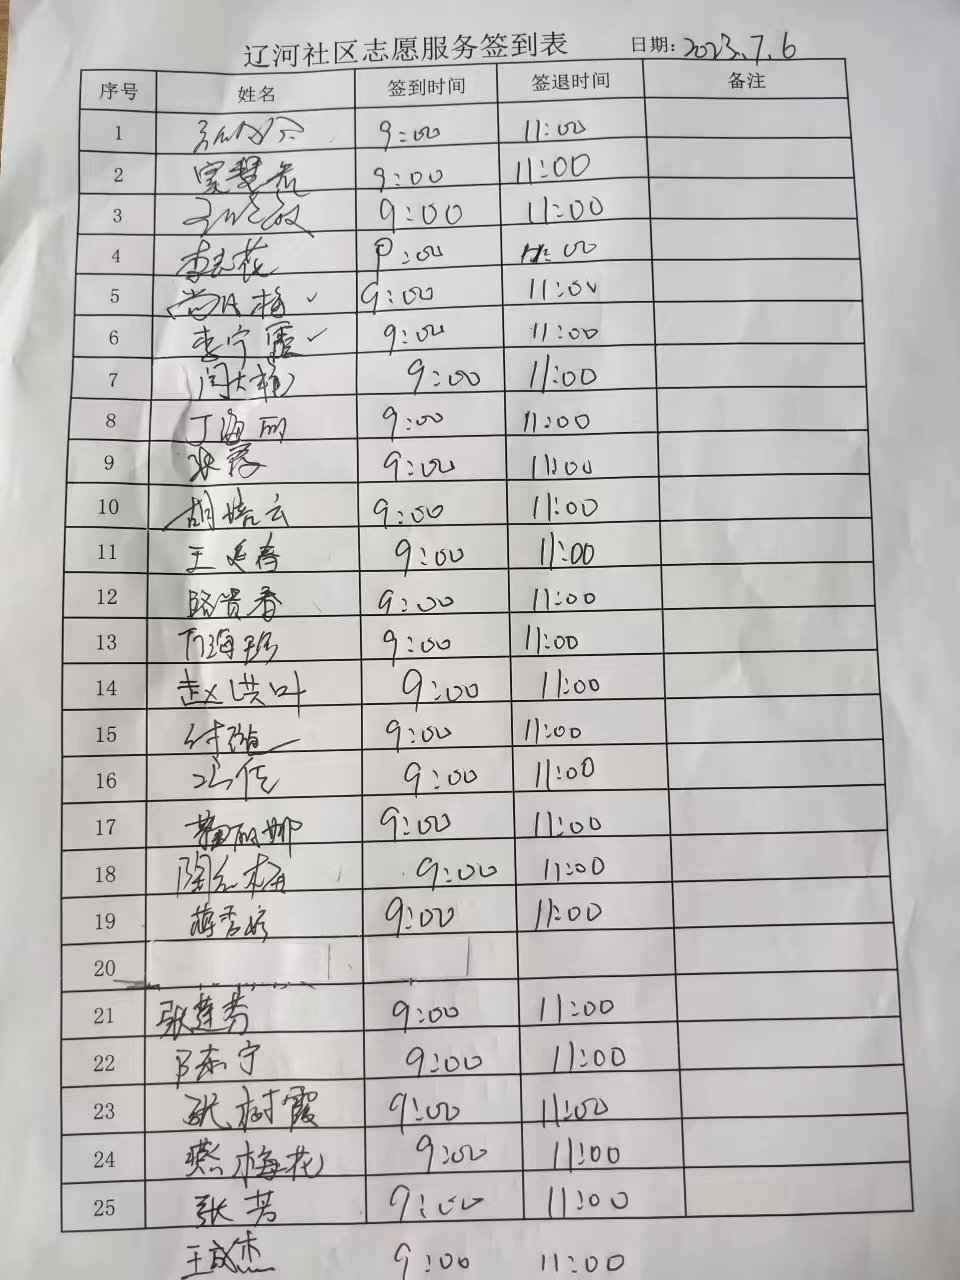 辽河社区志愿服务签到表 日期: 2023.7.6
序号 姓名 签到时间 签退时间 备注
1 9:00 11:00
2 9:00 11:00
3 9:00 11:00
4 李志花 9:00 11:00
5 9:00 11:00
6 李宁霞 ✓ 9:00 11:00
7 闫大相 9:00 11:00
8 丁海丽 9:00 11:00
9 张霞 9:00 11:00
10 胡培云 9:00 11:00
11 王延春 9:00 11:00
12 路贵香 9:00 11:00
13 海珍 9:00 11:00
14 赵洪叶 9:00 11:00
15 付强 9:00 11:00
16 9:00 11:00
17 丽娜 9:00 11:00
18 陶红梅 9:00 11:00
19 蒋秀 9:00 11:00
20
21 张莲芳 9:00 11:00
22 陈宁 9:00 11:00
23 张树霞 9:00 11:00
24 梅花 9:00 11:00
25 张芳 9:00 11:00
王成杰 9:00 11:00